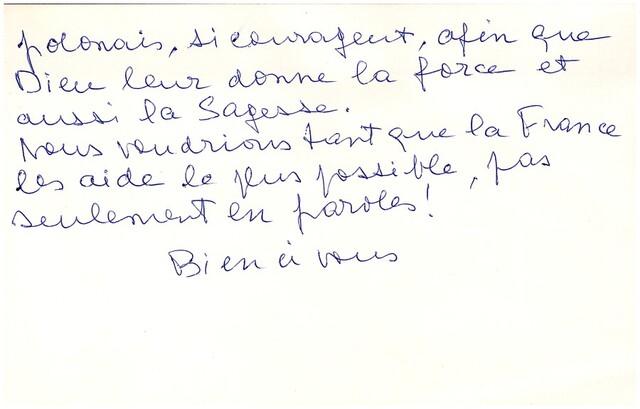 polonais, si courageux, afin que
Dieu leur donne la force et
aussi la Sagesse.
Nous voudrions tant que la France
les aide le plus possible, pas
seulement en paroles!
Bien à vous